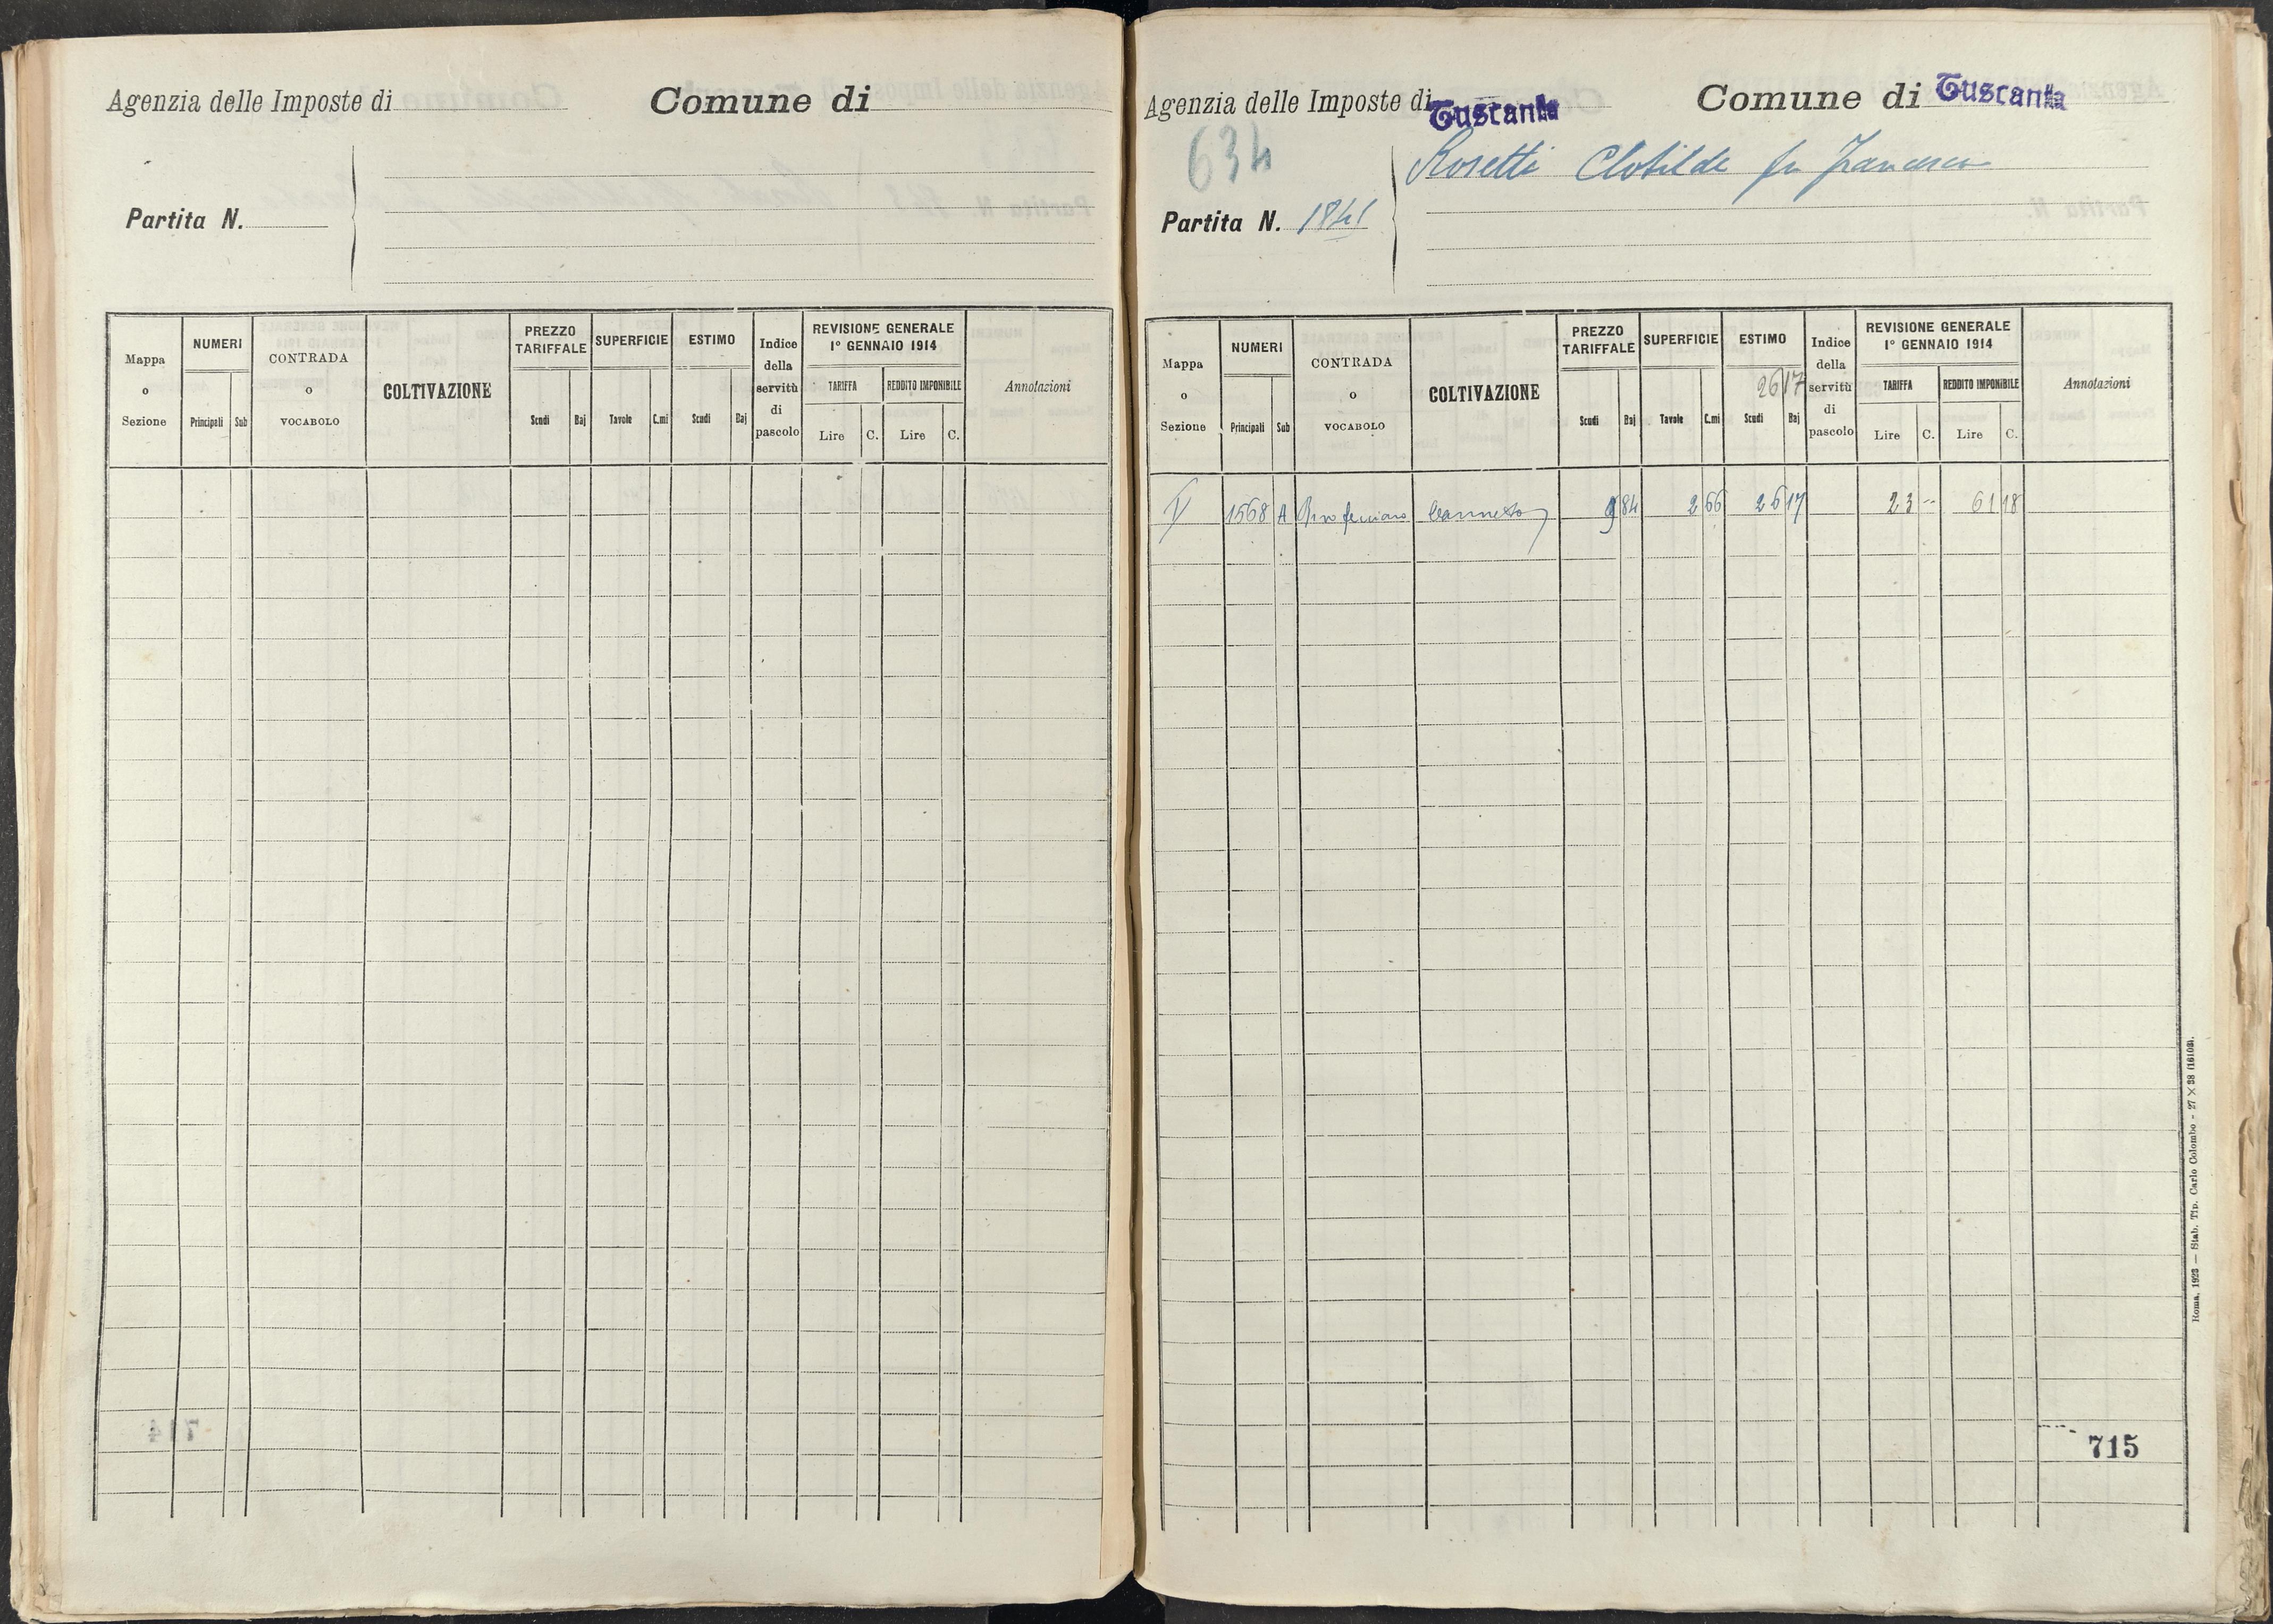 Agenzia delle Imposte di
Comune di
Partita N.
Mappa o Sezione
NUMERI
Principali
Sub
CONTRADA o VOCABOLO
COLTIVAZIONE
PREZZO TARIFFALE
Scudi
Baj
SUPERFICIE
Tavole
C.mi
ESTIMO
Scudi
Baj
Indice della servitù di pascolo
REVISIONE GENERALE
1° GENNAIO 1914
TARIFFA
REDDITO IMPONIBILE
Lire
C.
Lire
C.
Annotazioni
Agenzia delle Imposte di Tuscania
Comune di Tuscania
634
Rosetti Clotilde fu Francesco
Partita N. 1841
Mappa o Sezione
NUMERI
Principali
Sub
CONTRADA o VOCABOLO
COLTIVAZIONE
PREZZO TARIFFALE
Scudi
Baj
SUPERFICIE
Tavole
C.mi
ESTIMO
2617
Scudi
Baj
Indice della servitù di pascolo
REVISIONE GENERALE
1° GENNAIO 1914
TARIFFA
REDDITO IMPONIBILE
Lire
C.
Lire
C.
Annotazioni
V 1568 A 9 84 2 66 26 17 23 -- 61 18
715
Roma, 1923 — Stab. Tip. Carlo Colombo - 27 × 38 (16103).